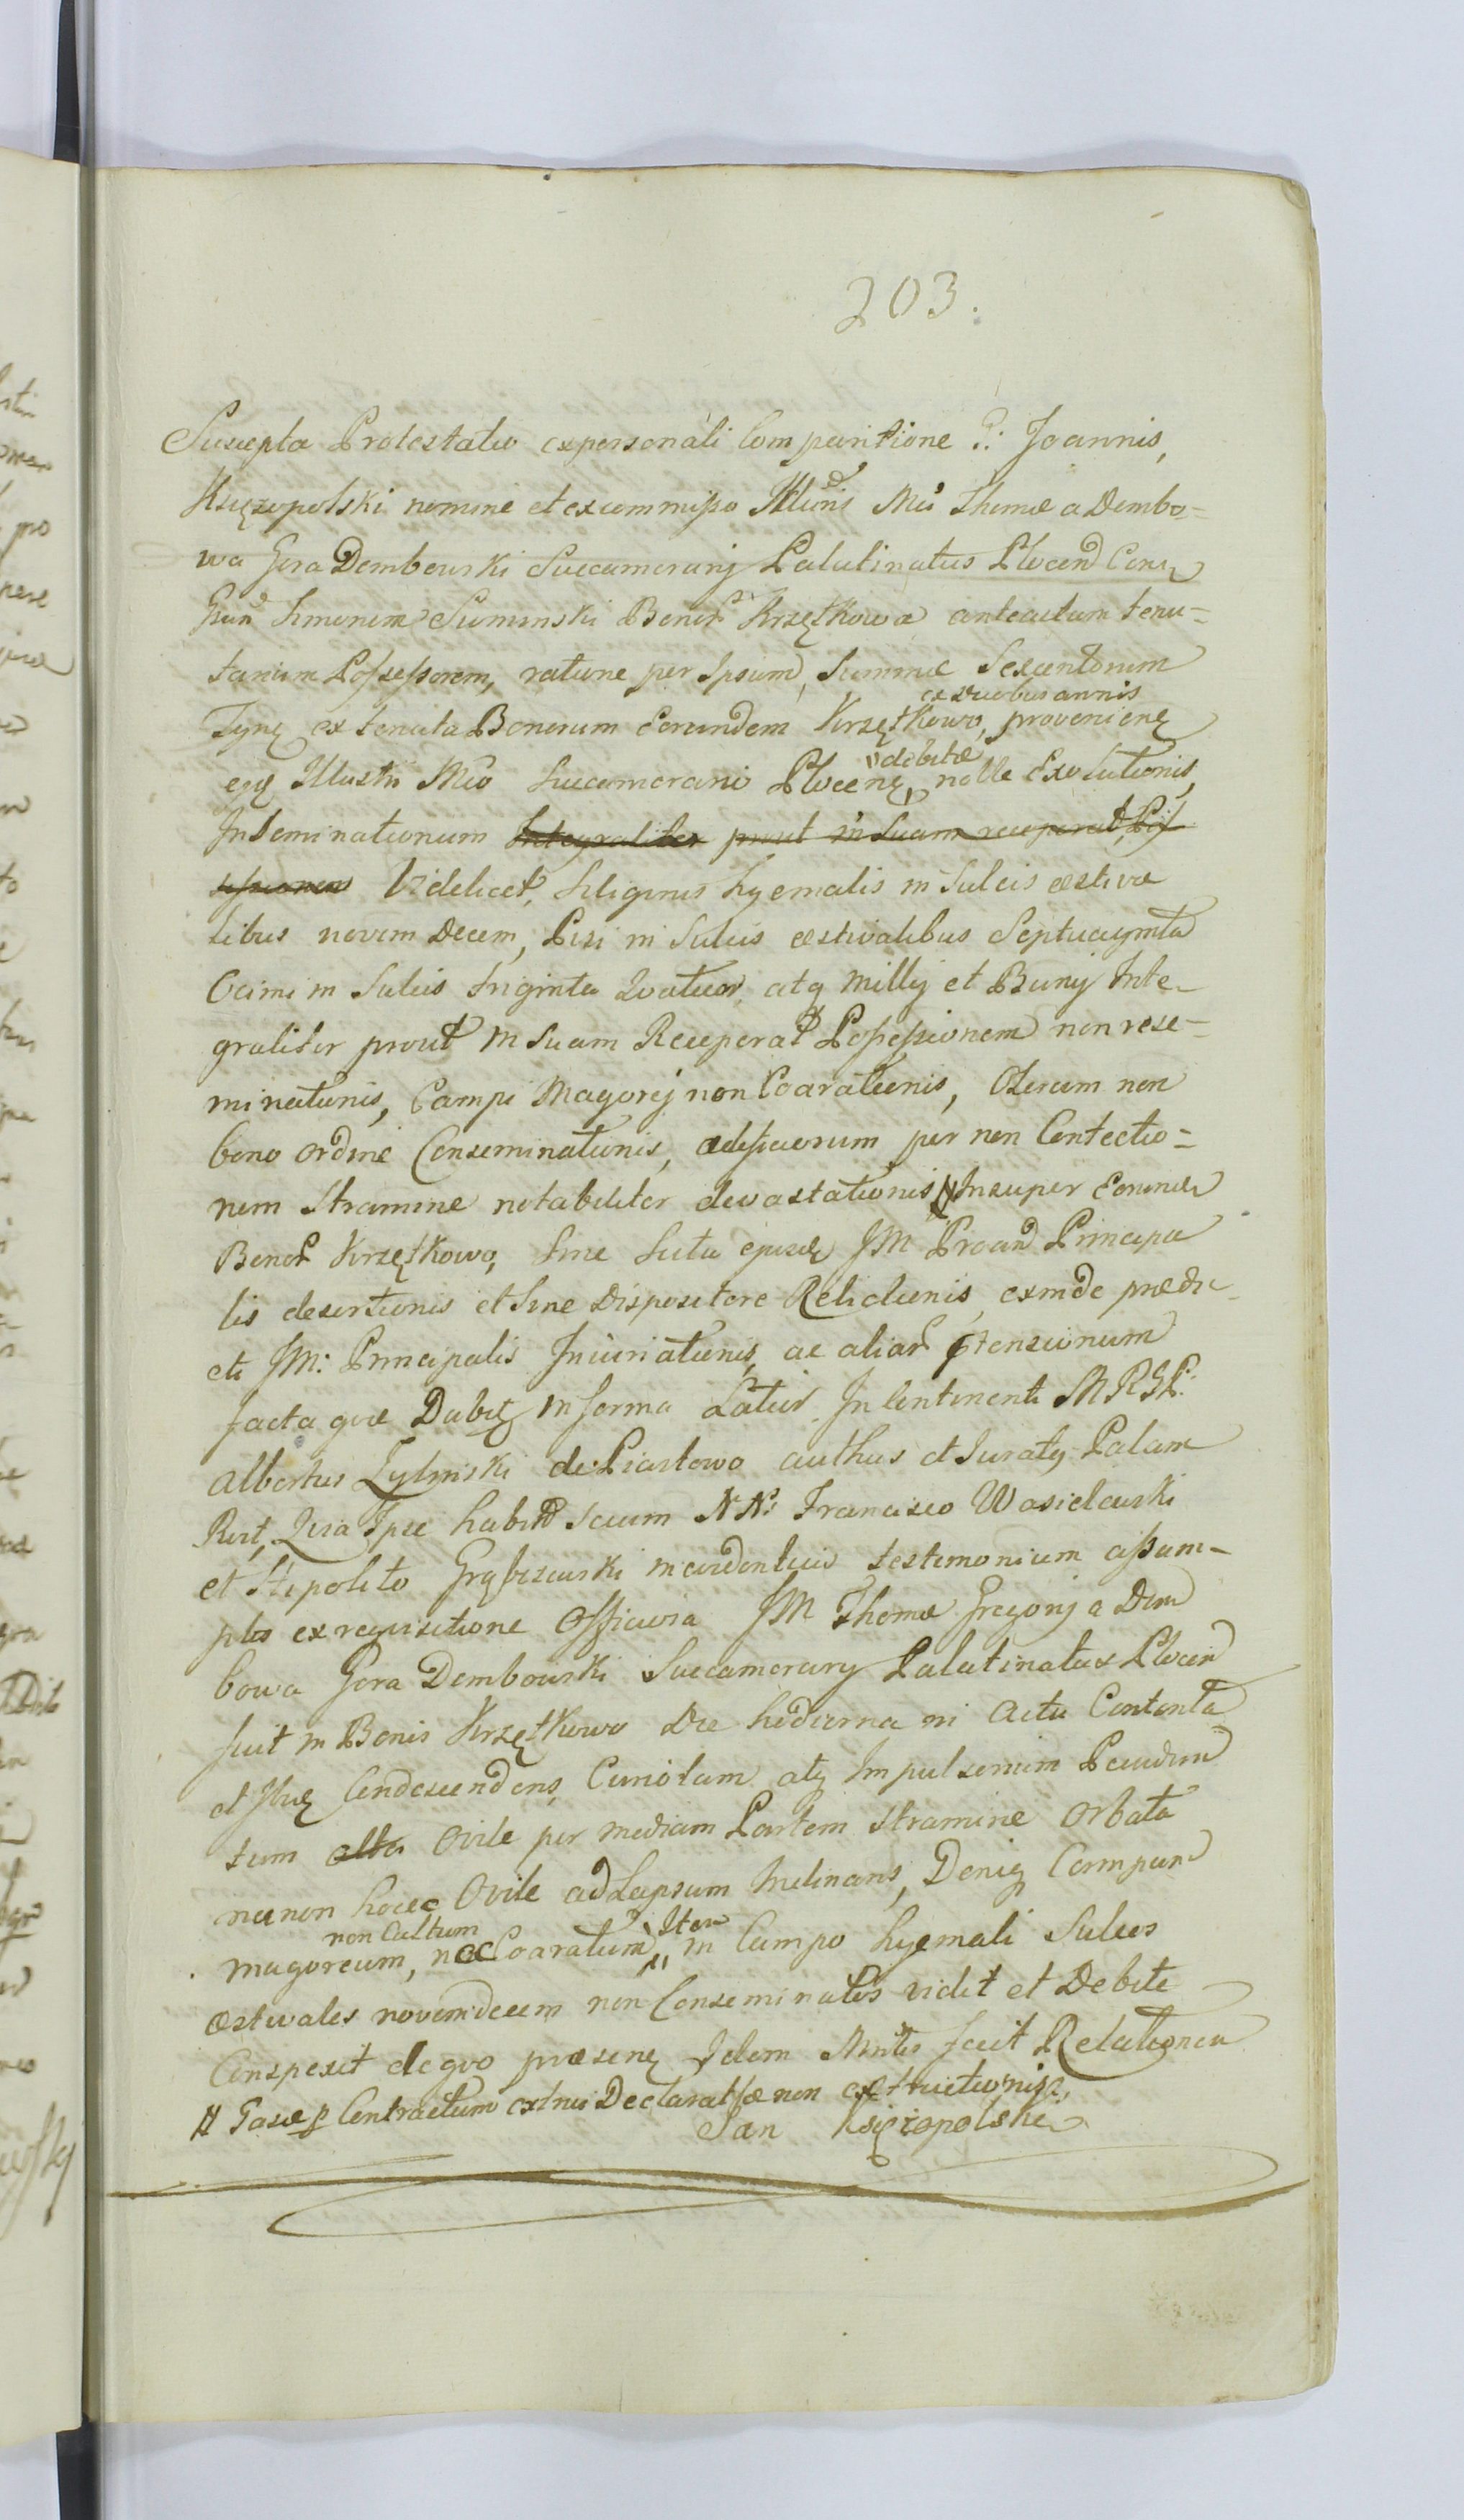 203.
Suscepta Protestatio ex personali Comparitione G: Joannis,
Księzopolski nomine et ex commisso Illuris Mci Thomæ a Dembo=
wa Gora Dembowski Succamerarij Palatinatus Plocen Contra
Gsum Simonem Suminski Bonor Krzętkowa anteactum tenu=
tarium Possessorem, ratione per Ipsum, Summæ Sexcentorum
ex duobus annis
Tynf ex tenuta Bonorum Eorundem Krzętkowo, provenien
debitæ
Illustri Mco Succamerario Plocen, nolle Exolutionis,
Inseminationum Integraliter prout in Suam receperat Pos
sessionem Videlicet, Siliginis hyemalis in Sulcis æstiva
libus novem Decem, Pisi in Sulcis æstivalibus Septuaginta
Ocimi in Sulcis Triginta Quatuor, atq Millij et Buny Inte=
graliter prout in Suam Receperat Possessionem non rese=
minationis, Campi Magorej non Coarationis, Olerum non
bono ordine Conseminationis, ædificiorum per non Contectio=
nem Stramine notabiliter devastationis # Insuper Eorunde
Bonor Krzętkowo, Sine Scitu ejusd JM Proand Principa
lis desertionis et Sine Dispositore Relictionis, exinde prædi=
cti JM: Principalis Iniuriationis, ac aliar ptensionum
facta quæ Dabit in forma Latiori. In Continenti MRGP:
Albertus Zylinski de Piastowo authus et Juraty Palam
Rect, Quia Ipse habito Secum NN: Francisco Wasilewski
et Hipolito Grąbczewski in evidentius testimonium assum=
ptis ex requisitione Officiosa JM Thomæ Gregorij a Dem
bowa Gora Dembowski Succamerary Palatinatus Plocen
fuit in Bonis Krzętkowo Die hodierna in Actu Contenta
et Condescendens, atq
tum alta Ovile per mediam Partem Stramine Orbata
necnon hocec Ovile ad Lapsum Inclinans, Deniq Campum
non Cultum Item
magoreum, nec Coaratum, in Campo hyemali Sulcos
æstivales novemdecem non Conseminatos vidit et Debite
Conspexit de quo præsens Idem Mintr fecit Relationem
# Casæ p Contractum extrui Declaratæ non extructionis,
Jan Księzopolski